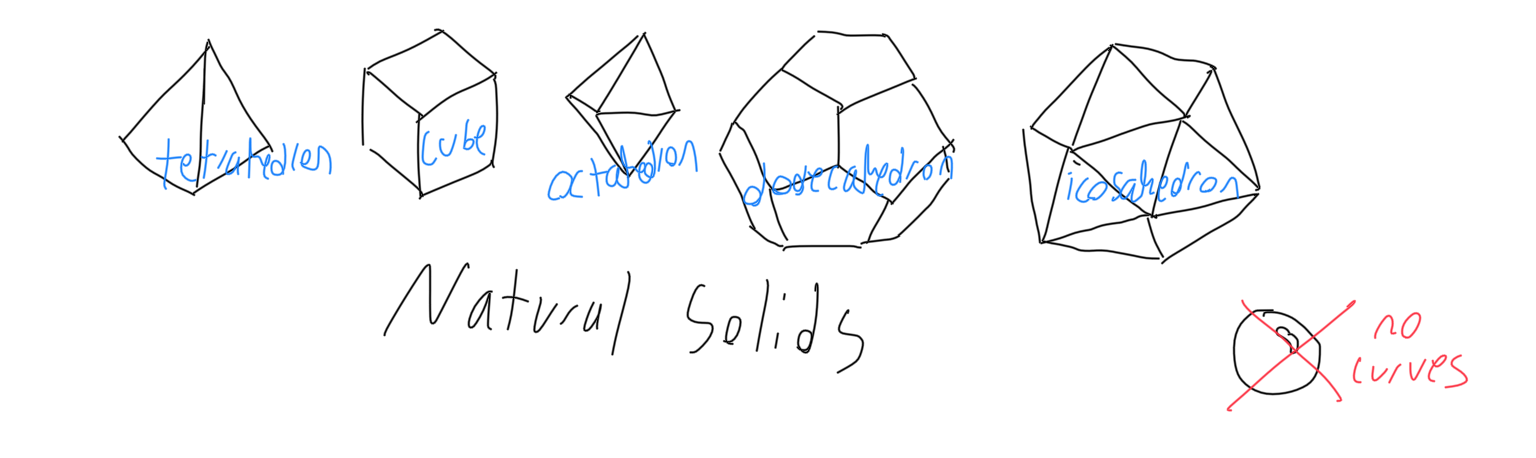 tetrahedron
cube
octahedron
dodecahedron
icosahedron
Natural Solids
no
curves